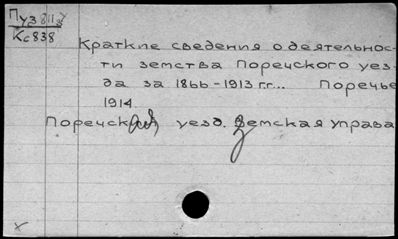 Пуз 811а
Кс838
Краткие сведения о деятельнос-
ти земства Поречского уез-
да за 1866-1913 гг... Поречье
1914
Поречская уезд. Земская управа